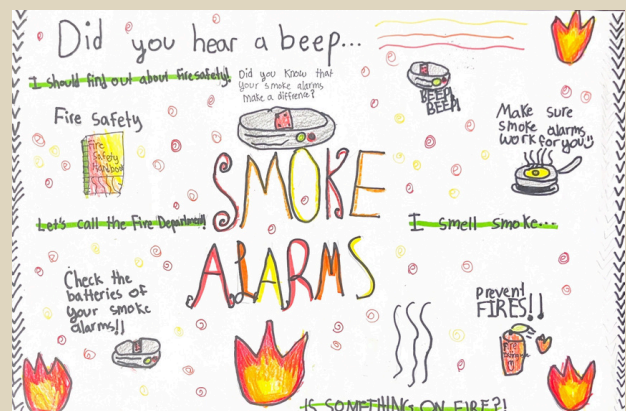 Did you hear a beep...
I should find out about fire safety!
Did you know that
your smoke alarms
make a diffrence?
BEEP!
BEEP!
Fire Safety
Fire
Safety
Handbook
Make sure
smoke alarms
work for you!!
SMOKE
ALARMS
Let's call the Fire Department!
I smell smoke...
Check the
batteries of
your smoke
alarms!!
prevent
FIRES!!
Fire
IS SOMETHING ON FIRE?!